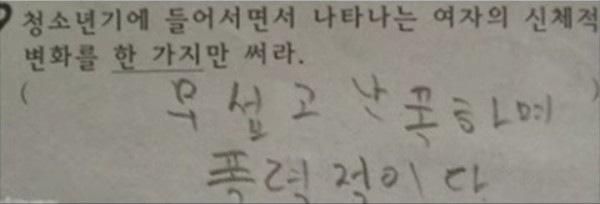 청소년기에 들어서면서 나타나는 여자의 신체적
변화를 한 가지만 써라.
( 무섭고 난폭하며 )
폭력적이다